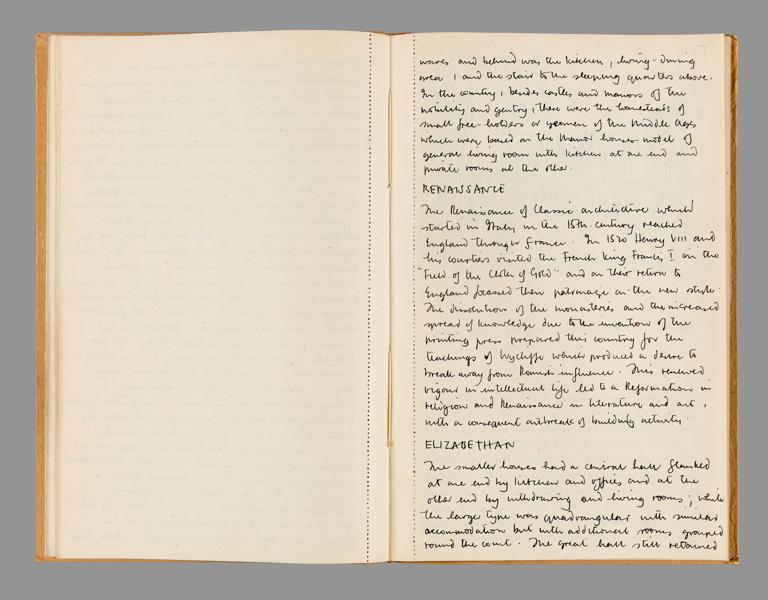 wares and behind was the kitchen, living-dining
area, and the stair to the sleeping quarters above.
In the country, besides castles and manors of the
nobility and gentry, there were the homesteads of
small free-holders or yeomen of the Middle Ages
which were based on the Manor house model of
general living room with kitchen at one end and
private rooms at the other.
RENAISSANCE
The Renaissance of Classic architecture which
started in Italy in the 15th century reached
England through France. In 1520 Henry VIII and
his courtiers visited the French King Francis I on the
"Field of the Cloth of Gold" and on their return to
England focussed their patronage on the new style.
The dissolution of the monasteries and the increased
spread of knowledge due to the invention of the
printing press prepared this country for the
teachings of Wycliffe which produced a desire to
break away from Romish influence. This renewed
vigour in intellectual life led to a Reformation in
religion and Renaissance in literature and art,
with a consequent outbreak of building activity.
ELIZABETHAN
The smaller houses had a central hall flanked
at one end by kitchen and offices and at the
other end by withdrawing and living rooms; while
the large type was quadrangular with similar
accommodation but with additional rooms grouped
round the court. The great hall still retained